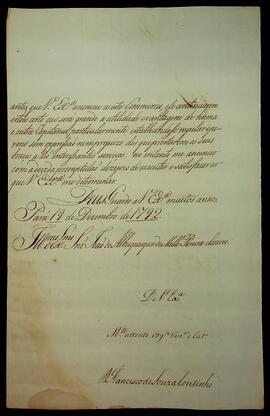 antes, que V. Exª. animou a este Commercio, e se continuar em
certo que sera grande a utilidade e vantagem de huma
e outra Capitania, particularmente estabelecendo se regular e
sem oppressão nem prejuizo dos que prestarem os seus
braços a tão interessantes serviços: no entanto me anuncio
com a devida promptidão desejoso de executar e satisfazer ao
que V. Exª. me determinar.
Deus Guarde a V. Exª. muitos annos
Pará 12 de Dezembro de 1792
Illmo. e Exmo. Snr. João de Albuquerque de Mello Pereira e Caceres
De V. Exª.
Mto. attento, obrgdo. Ven.or e Cr.
D. Francisco de Souza Coutinho